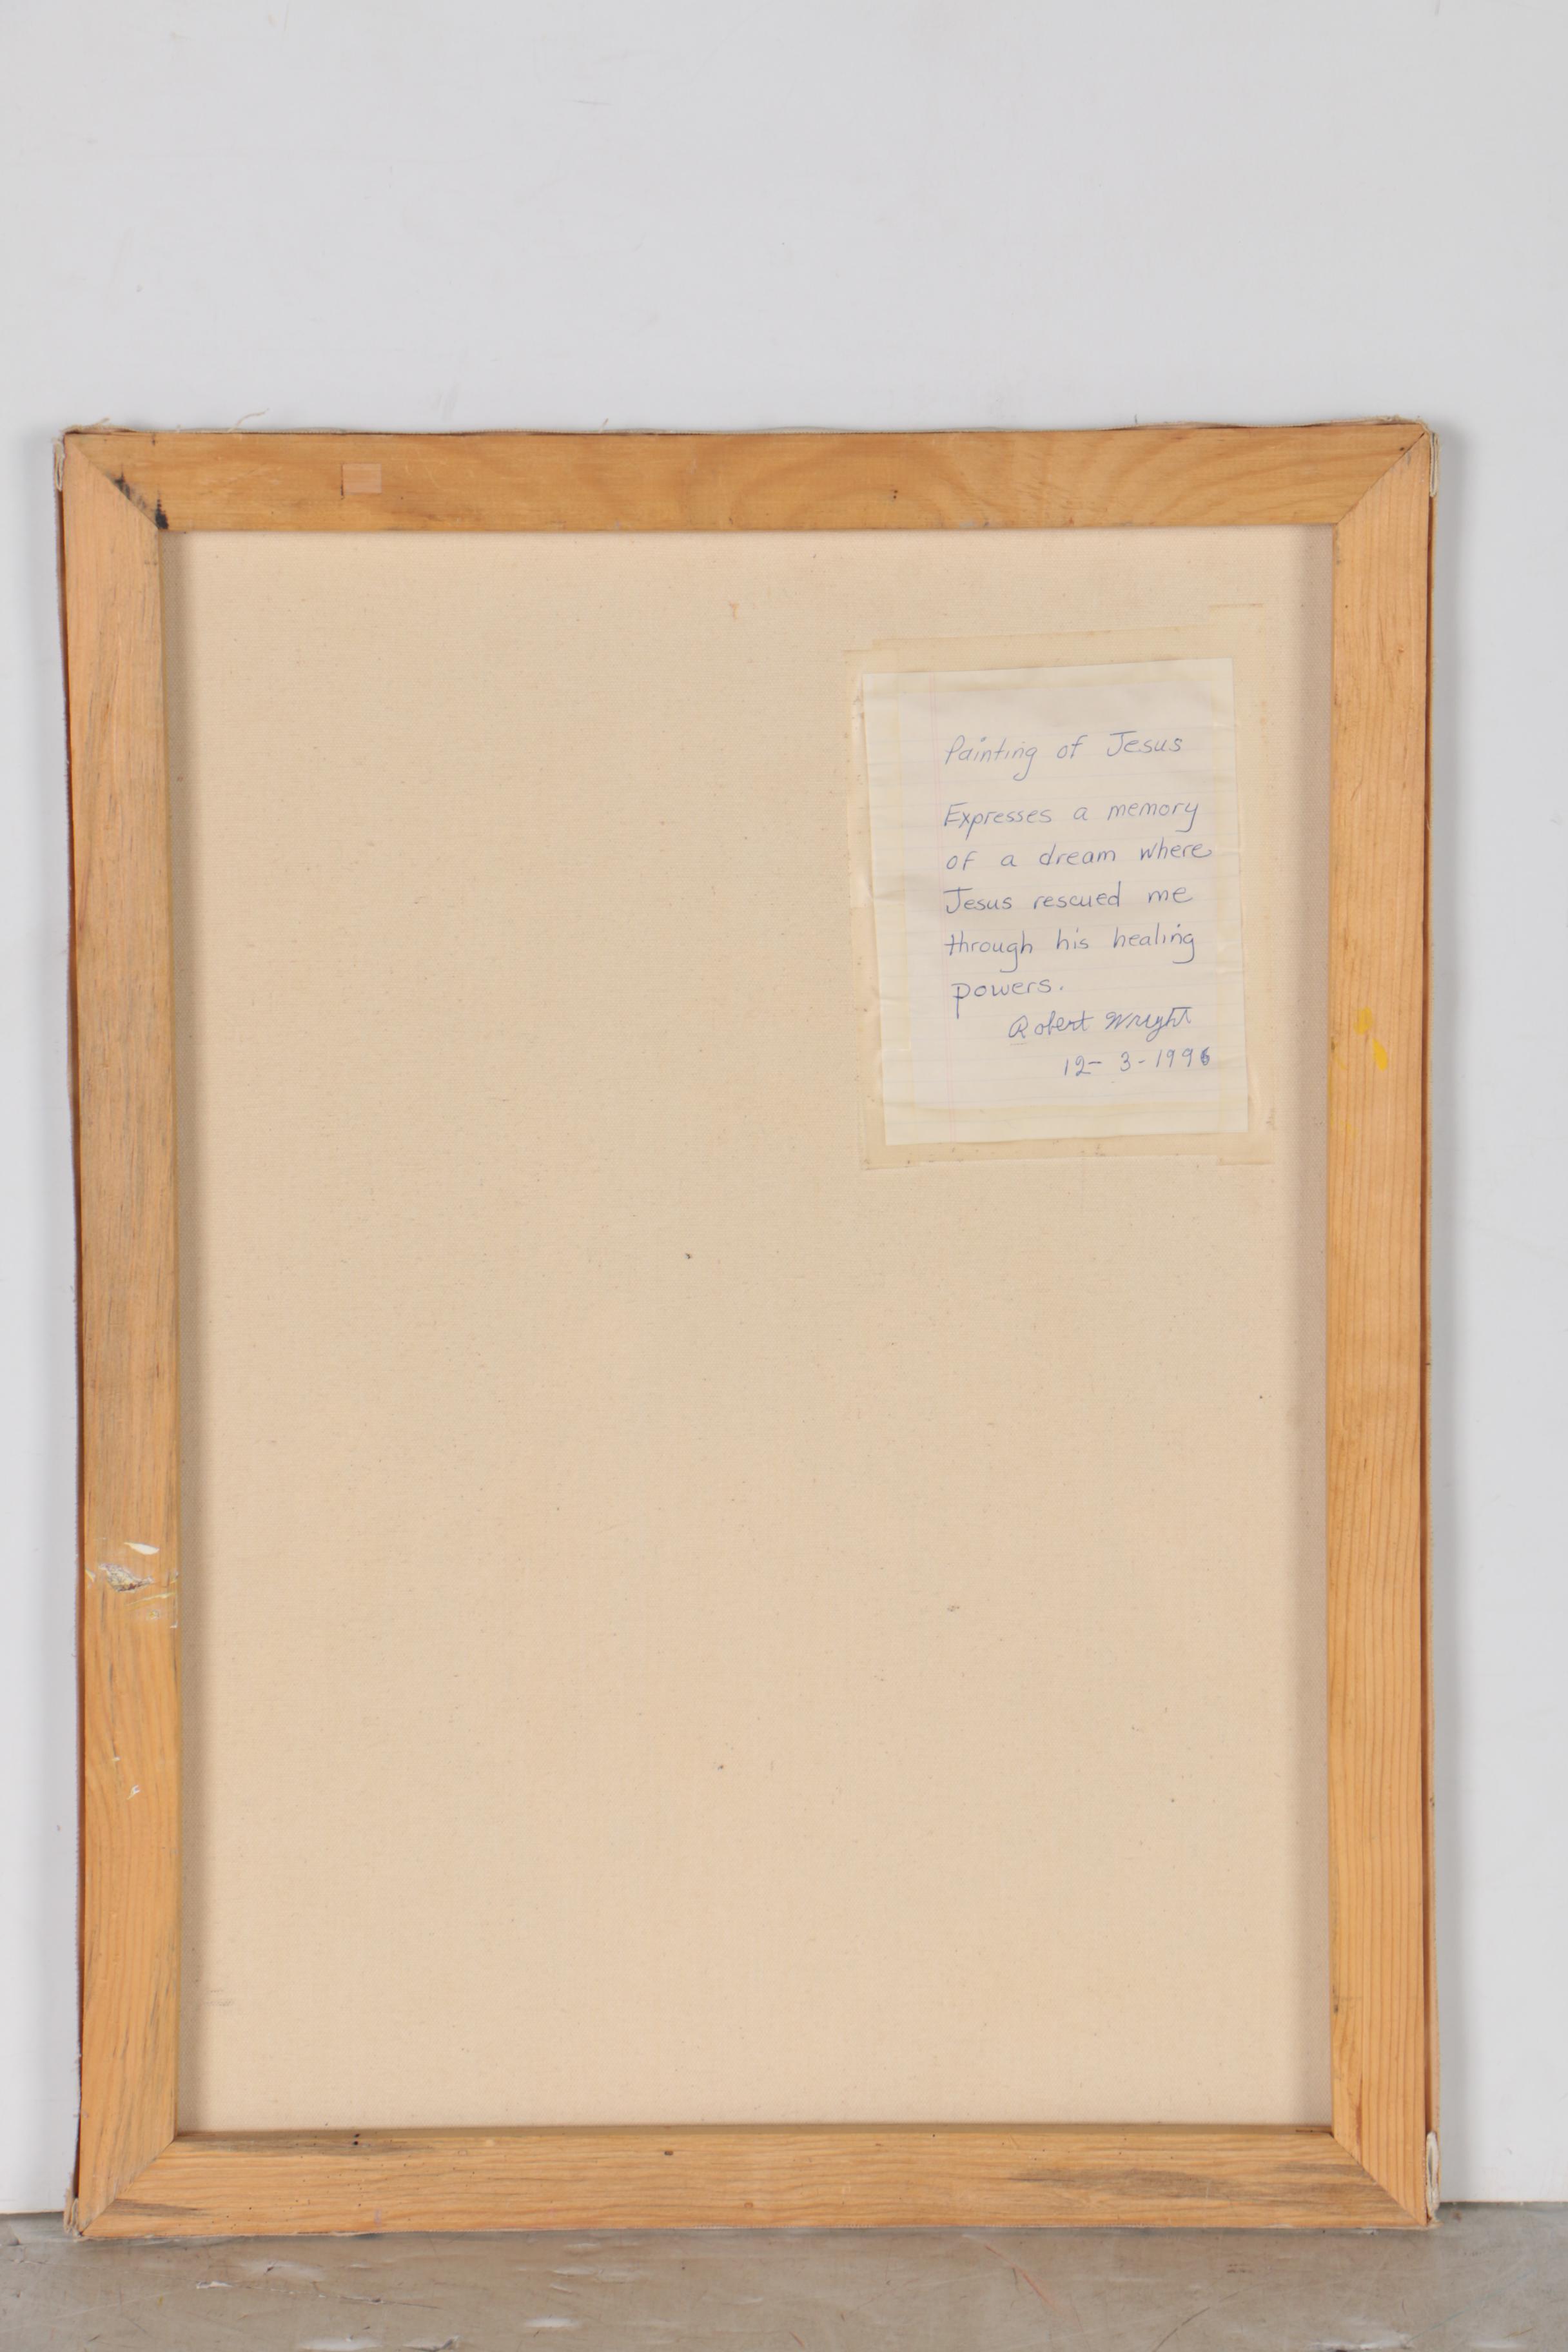 Painting of Jesus
Expresses a memory
of a dream where
Jesus rescued me
through his healing
powers.
Robert Wright
12- 3-1996